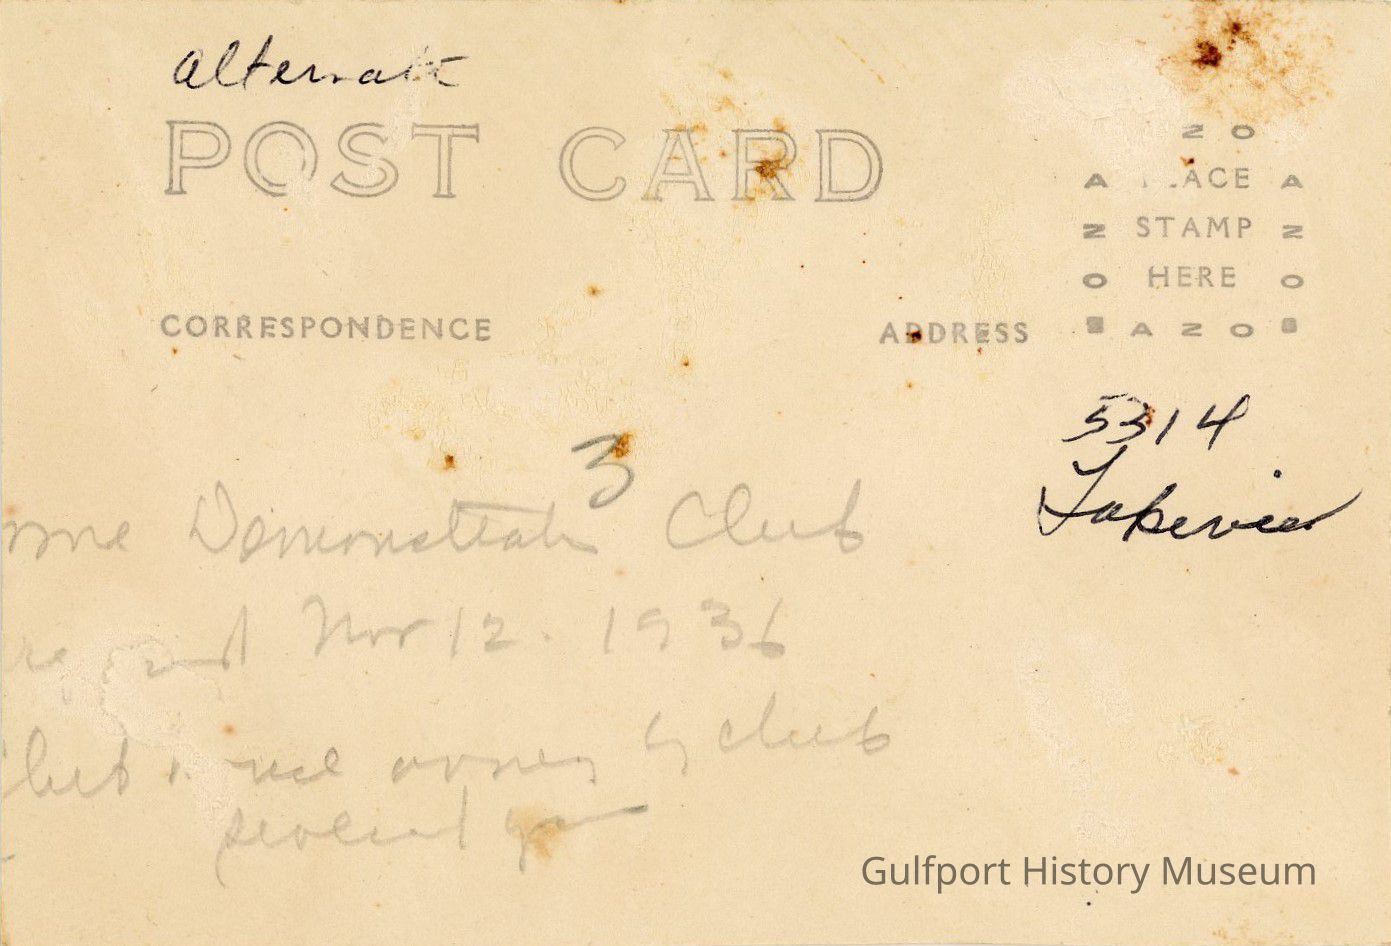 Alternate
POST CARD
AZO
PLACE
STAMP
HERE
AZO
CORRESPONDENCE
ADDRESS
5314
Lakeview
3
Demonstration Club
Nov 12. 1936
owned by club
several years
Gulfport History Museum